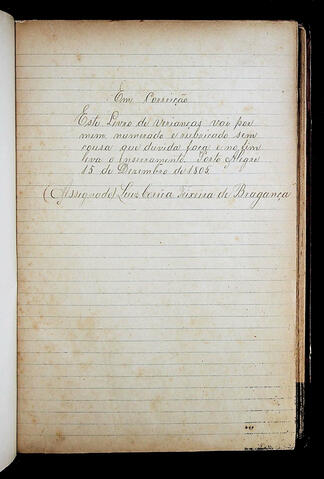 Em Correição
Este Livro de Verianças vai por
mim numerado e rubricado sem
cousa que duvida faça e no fim
leva o enseramento. Porto Alegre
15 de Dezembro de 1805
(Assignado) Luiz Corrêa Teixeira de Bragança